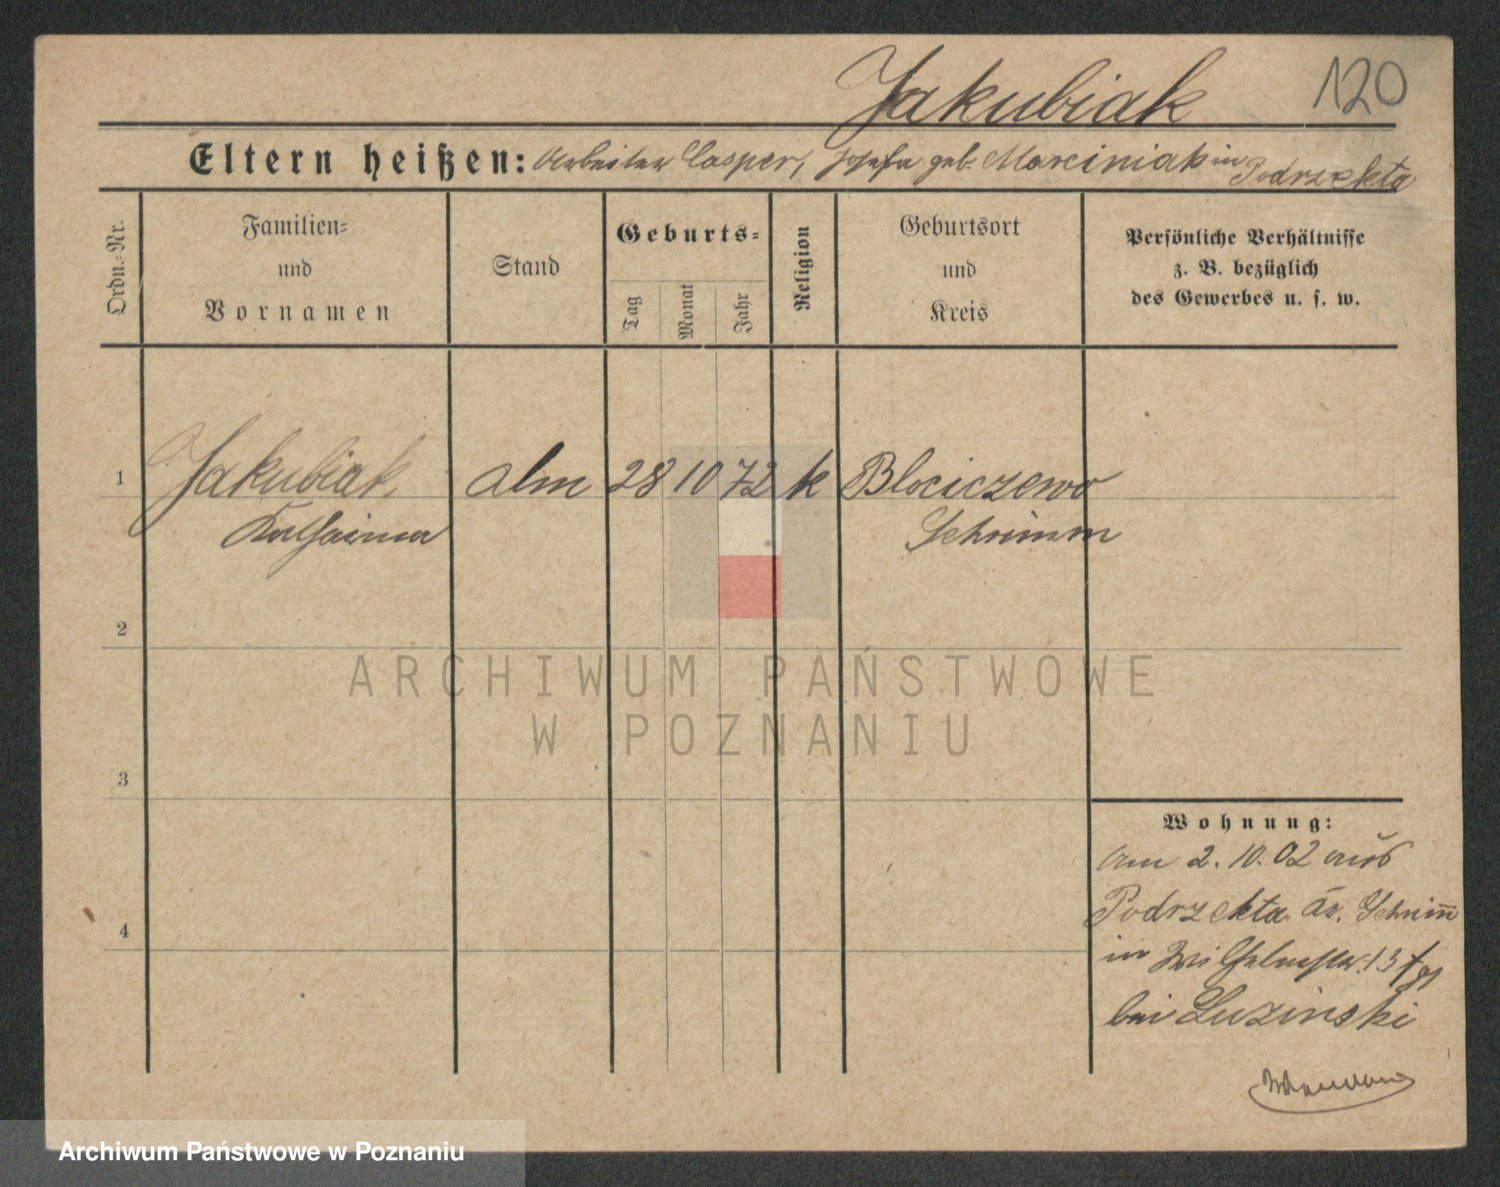 Jakubiak
120
Eltern heißen: Arbeiter Casper, Josefa geb. Marciniak in Podrzekta
Ordn.-Nr.
Familien-
und
Vornamen
Stand
Geburts-
Tag
Monat
Jahr
Religion
Geburtsort
und
Kreis
Persönliche Verhältnisse
z. B. bezüglich
des Gewerbes u. s. w.
1
Jakubiak
Katharina
28 10 72
k
Blociczewo
Schrimm
2
3
4
ARCHIWUM PAŃSTWOWE
W POZNANIU
Wohnung:
Am 2. 10. 02 aus
Podrzekta Kr. Schrim̅
in Wilhelmstr. 13
bei Luzinski
Archiwum Państwowe w Poznaniu